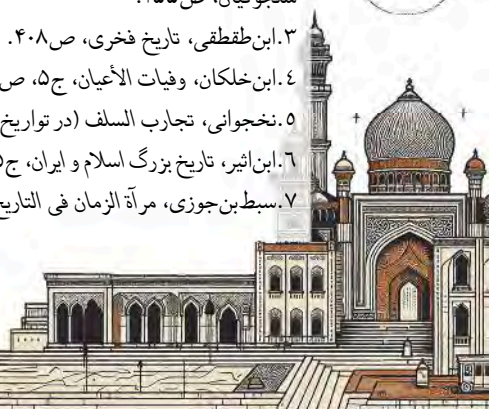 ۳.ابن‌طقطقی، تاریخ فخری، ص۴۰۸.
٤.ابن‌خلکان، وفیات الأعیان، ج۵، ص
٥.نخجوانی، تجارب السلف (در تواریخ
٦.ابن‌اثیر، تاریخ بزرگ اسلام و ایران، ج
۷.سبط‌بن‌جوزی، مرآة الزمان فی التاریخ